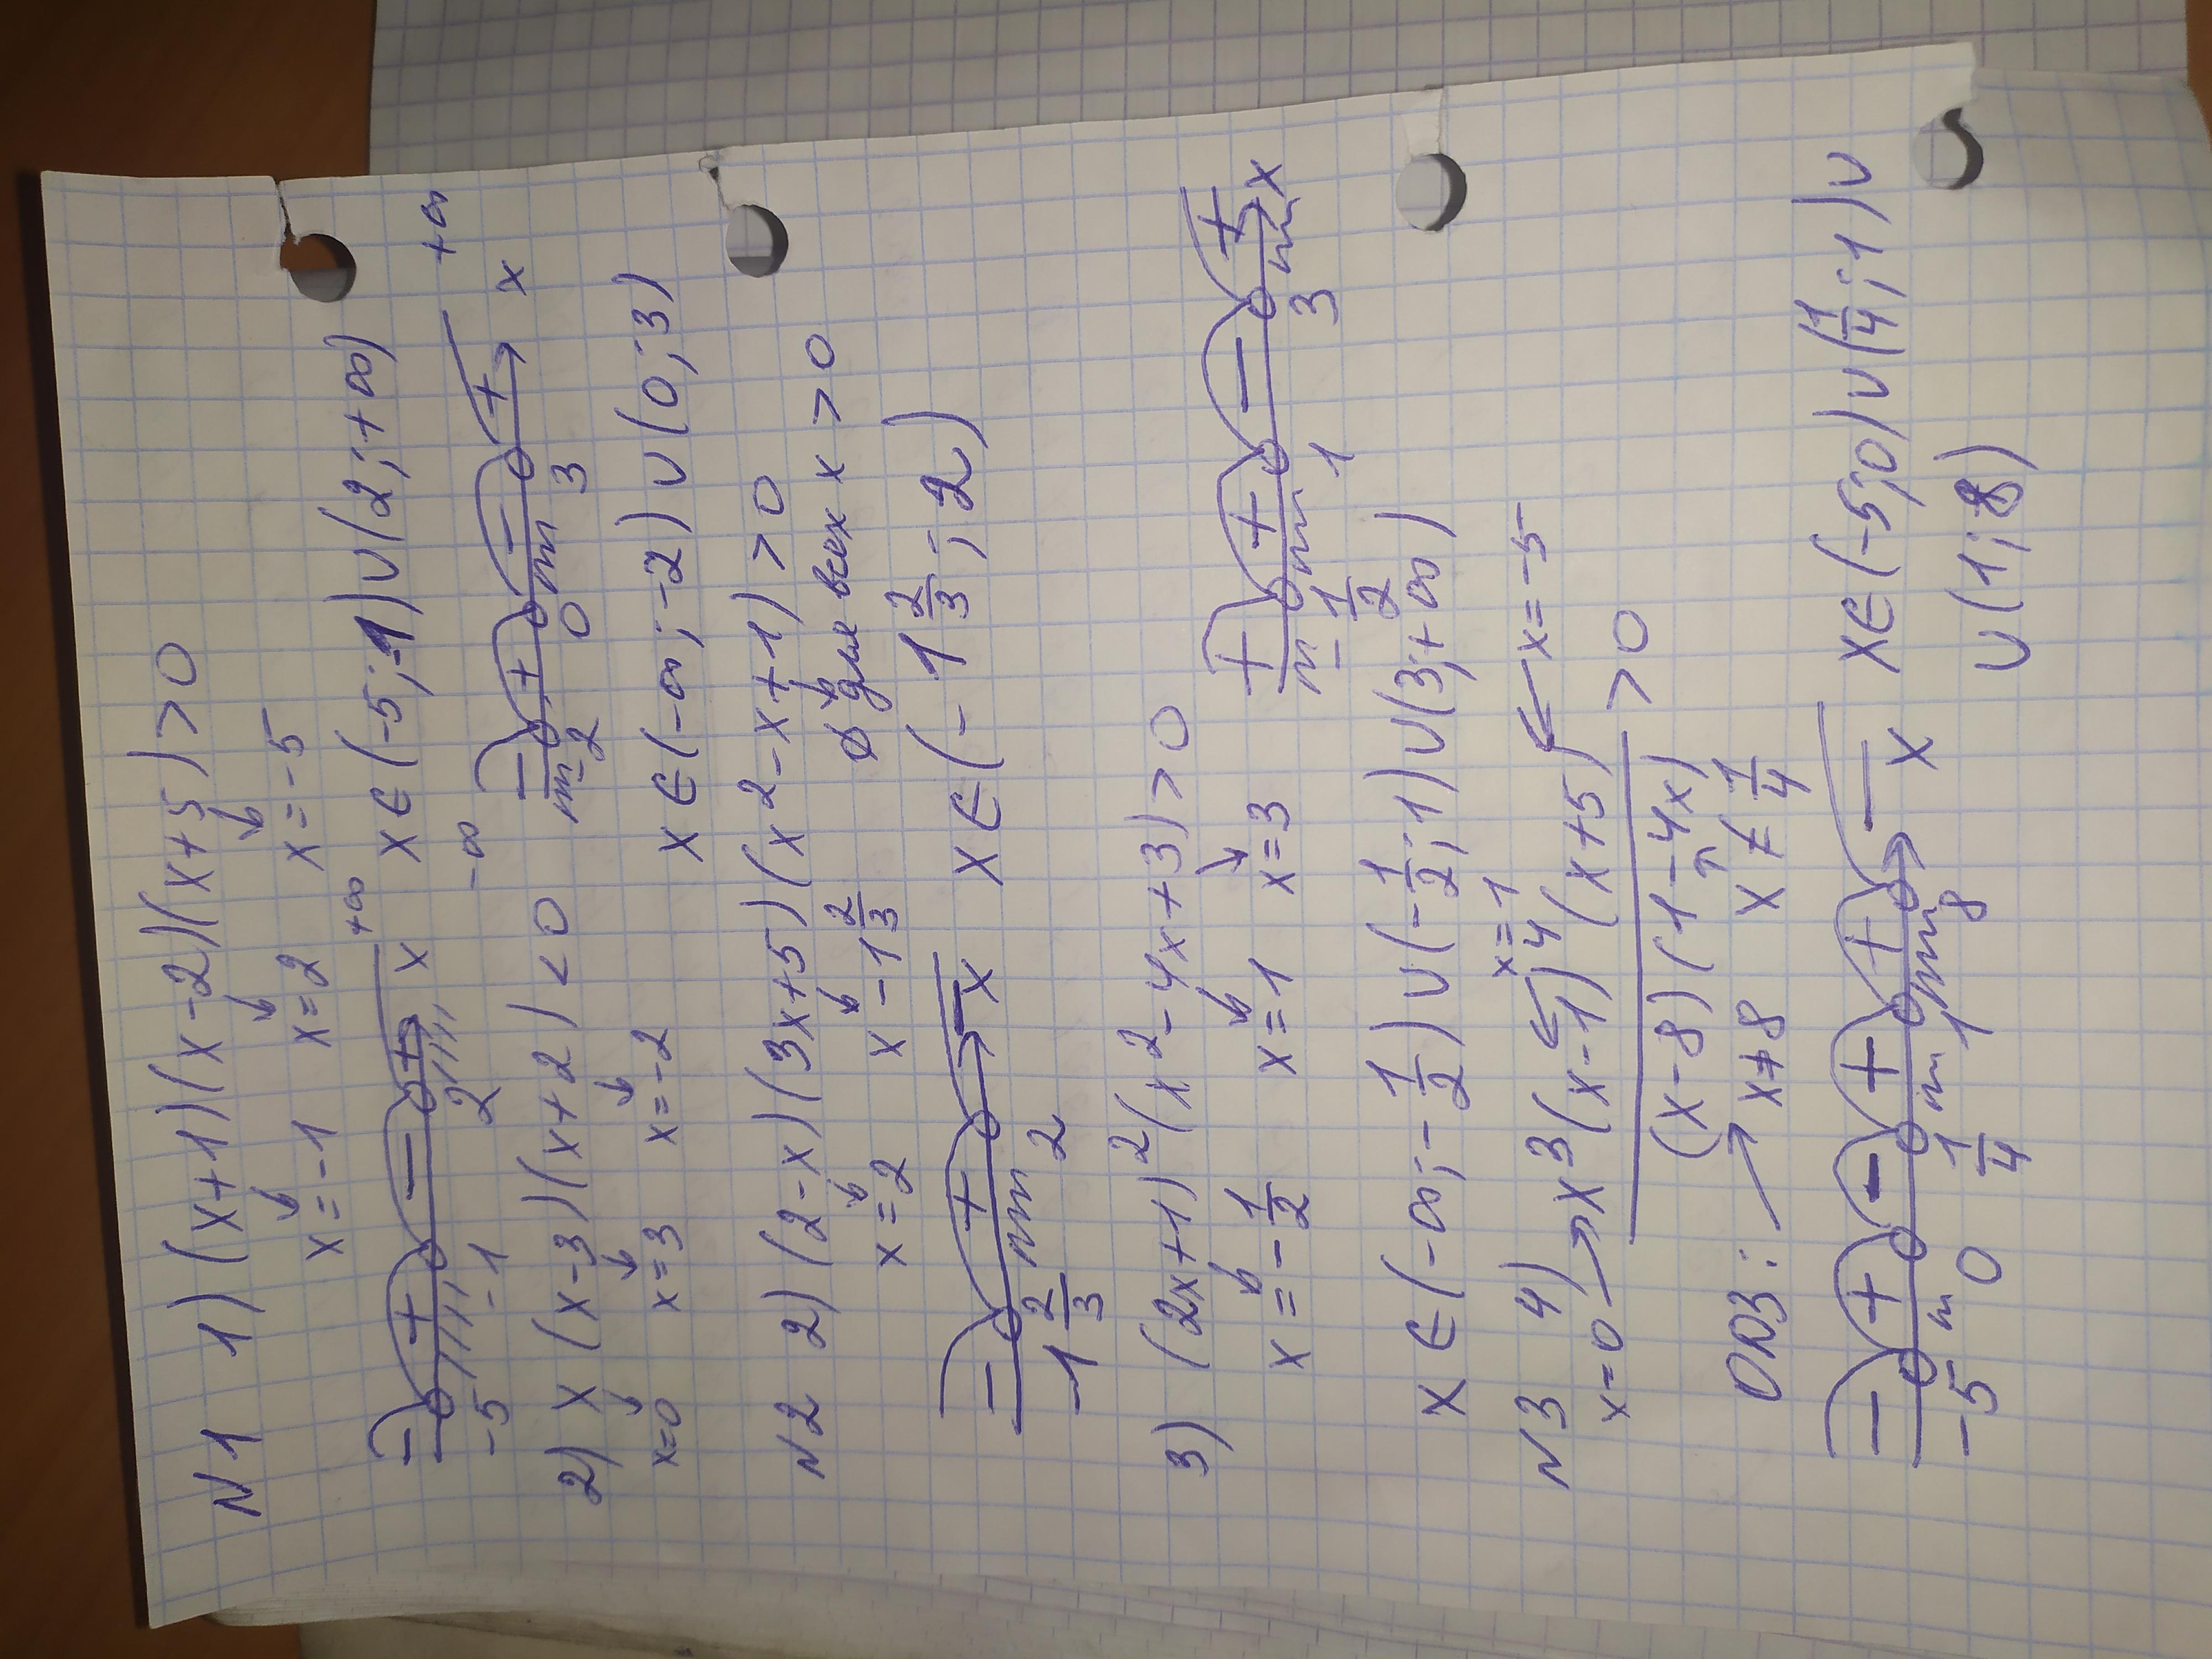 N1 1) (x+1)(x-2)(x+5)>0
x=-1 x=2 x=-5
- + - + x +∞
-5 -1 2
x∈(-5;-1)∪(2;+∞)
2) x(x-3)(x+2)<0
x=0 x=3 x=-2
-∞ - + - + x +∞
-2 0 3
x∈(-∞;-2)∪(0;3)
N2 2) (2-x)(3x+5)(x²-x+1)>0
x=2 x -1 2/3 ∅ для всех x>0
- + - x
-1 2/3 2
x∈(-1 2/3;2)
3) (2x+1)²(x²-4x+3)>0
x=-1/2 x=1 x=3
+ + - + x
-1/2 1 3
x∈(-∞;-1/2)∪(-1/2;1)∪(3;+∞)
N3 4) x³(x-1)⁴(x+5) / (x-8)(1-4x) >0
x=0 x=1 x=-5
ОДЗ: x≠8 x≠1/4
- + - + + - x
-5 0 1/4 1 8
x∈(-5;0)∪(1/4;1)∪
∪(1;8)